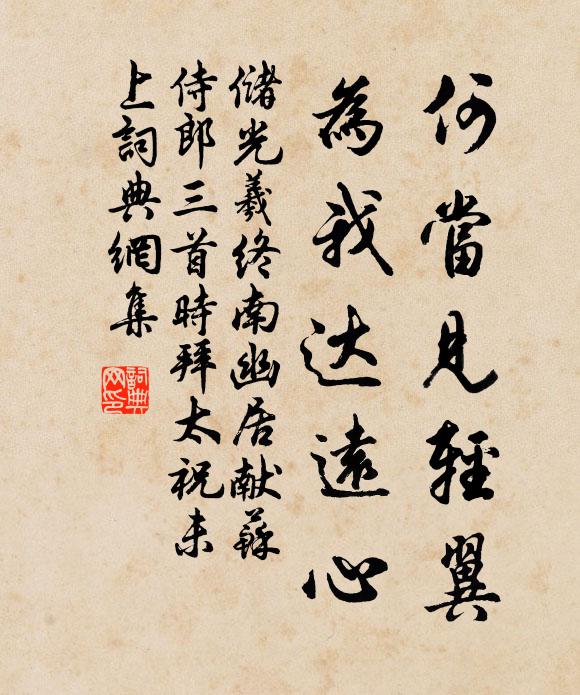 何當見輕翼
為我达遠心
儲光羲終南幽居献蘇
侍郎三首時拜太祝未
上詞典網集
詞典網印